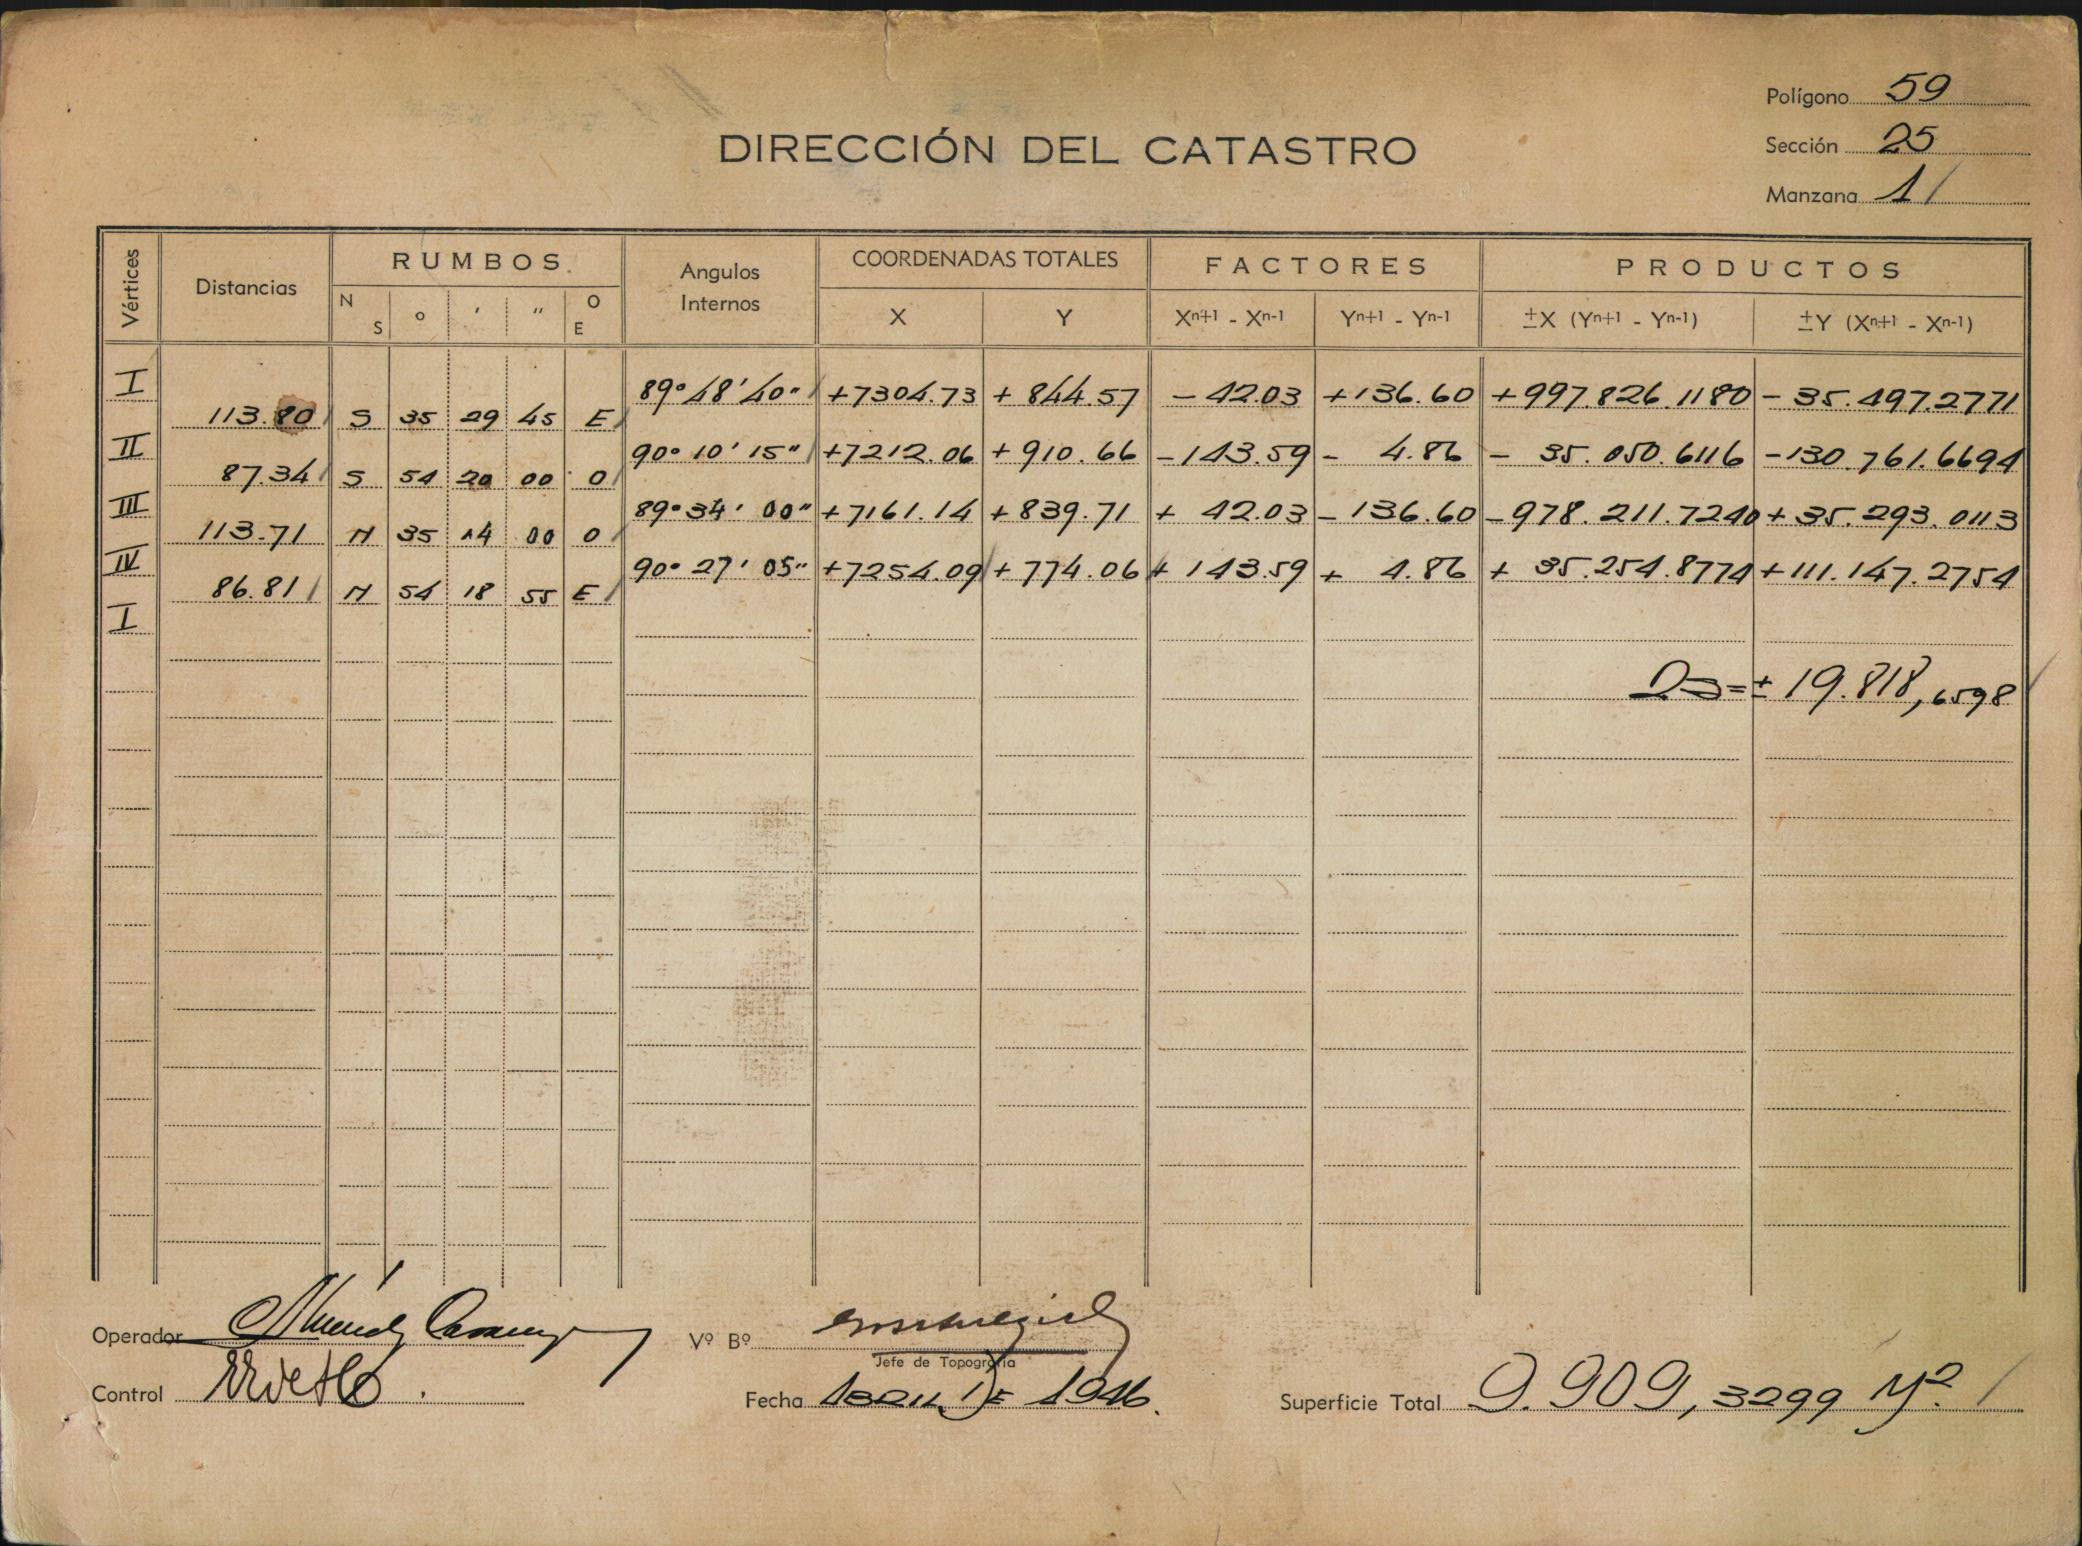 Polígono 59
DIRECCIÓN DEL CATASTRO
Sección 25
Manzana 1
Vértices Distancias RUMBOS Angulos Internos COORDENADAS TOTALES FACTORES PRODUCTOS
N S o ' " O E X Y Xn+1 - Xn-1 Yn+1 - Yn-1 ±X (Yn+1 - Yn-1) ±Y (Xn+1 - Xn-1)
I 89° 48' 40" +7304.73 +844.57 -42.03 +136.60 +997.826.1180 -35.497.2771
113.80 S 35 29 45 E
II 90° 10' 15" +7212.06 +910.66 -143.59 -4.86 -35.050.6116 -130.761.6694
87.34 S 54 20 00 O
III 89° 34' 00" +7161.14 +839.71 +42.03 -136.60 -978.211.7240 +35.293.0113
113.71 N 35 14 00 O
IV 90° 27' 05" +7254.09 +774.06 +143.59 +4.86 +35.254.8774 +111.147.2754
86.81 N 54 18 55 E
I
2S=± 19.818,6598
Operador Vº Bº
Jefe de Topografía
Control Fecha ABRIL DE 1946. Superficie Total 9.909,3299 M².